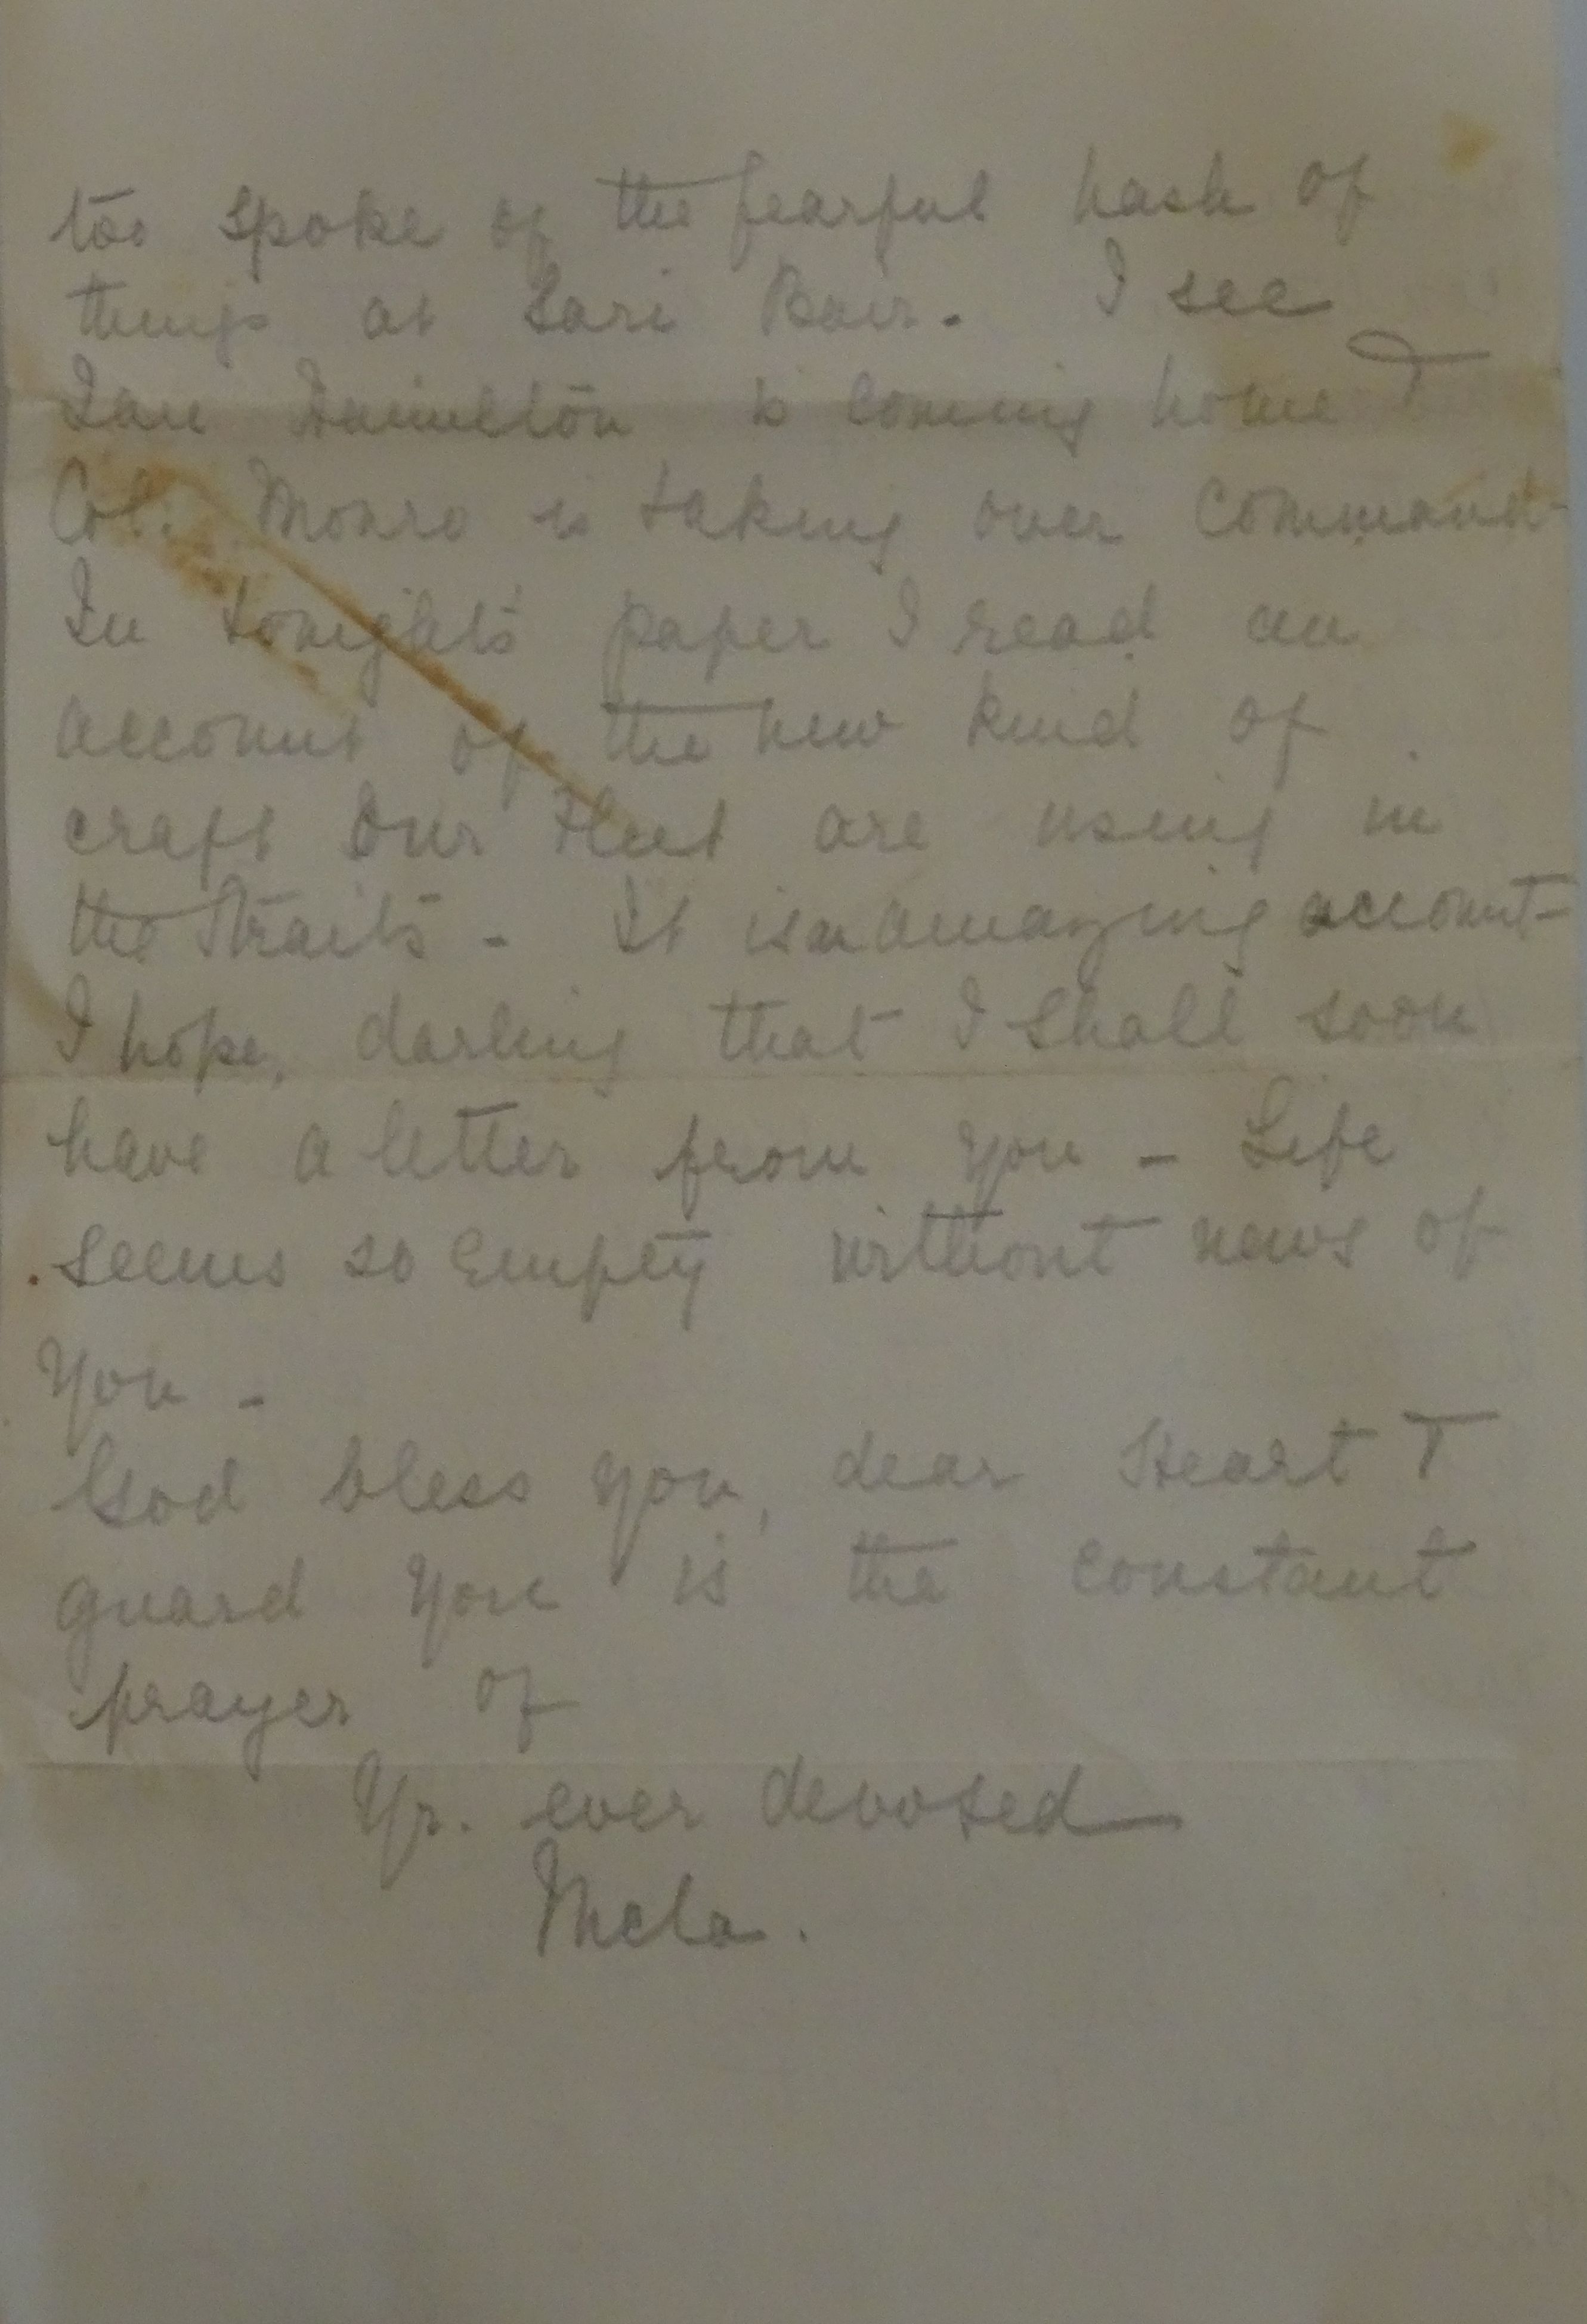 too spoke of the fearful hash of
things at Sari Bair. I see
Ian Hamilton is coming home &
Col. Monro is taking over command -
In tonight's paper I read an
account of the new kind of
craft our Fleet are using in
the Straits - It is an amazing account -
I hope, darling that I shall soon
have a letter from you - Life
seems so empty without news of
you -
God bless you, dear Heart &
guard you is the constant
prayer of
Yr. ever devoted
Mela.